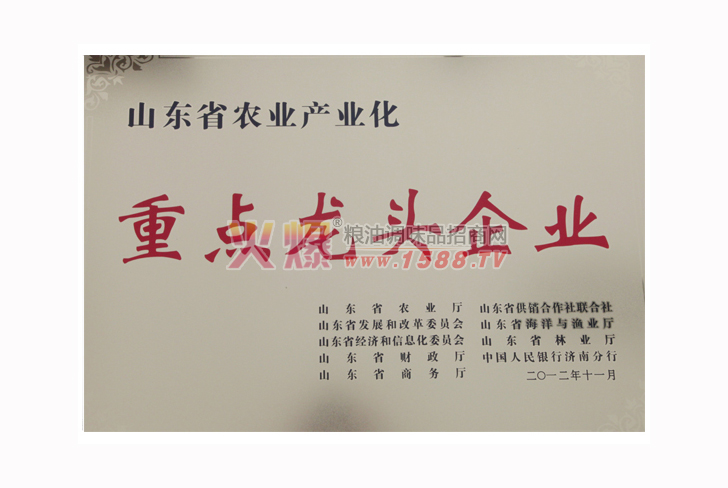 山东省农业产业化
重点龙头企业
火爆®粮油调味品招商网
www.1588.TV
山东省农业厅 山东省供销合作社联合社
山东省发展和改革委员会 山东省海洋与渔业厅
山东省经济和信息化委员会 山东省林业厅
山东省财政厅 中国人民银行济南分行
山东省商务厅 二〇一二年十一月